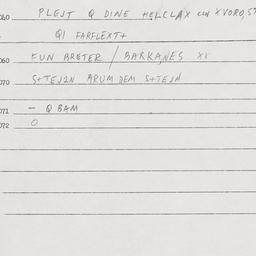 060 PLEJT Q DINE HELCLAX
QI FARFLEXT+
060 FUN BRETER / BARKANES XX
070 S+TEJIN ARUM DEM S+TEJN
071 - Q BAM
072 O